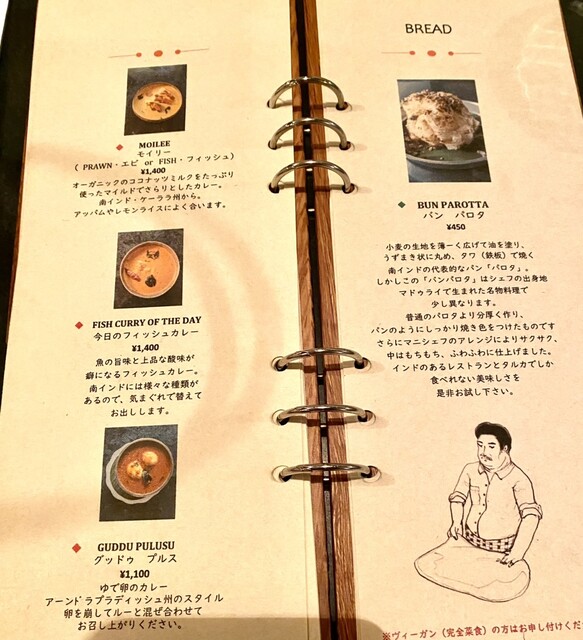 MOILEE
モイリー
( PRAWN・エビ or FISH・フィッシュ)
¥1,400
オーガニックのココナッツミルクをたっぷり
使ったマイルドでさらりとしたカレー。
南インド・ケーララ州から。
アッパムやレモンライスによく合います。
FISH CURRY OF THE DAY
今日のフィッシュカレー
¥1,400
魚の旨味と上品な酸味が
癖になるフィッシュカレー。
南インドには様々な種類が
あるので、気まぐれで替えて
お出しします。
GUDDU PULUSU
グッドゥ プルス
¥1,100
ゆで卵のカレー
アーンドラプラディッシュ州のスタイル
卵を崩してルーと混ぜ合わせて
お召し上がりください。
BREAD
BUN PAROTTA
バン パロタ
¥450
小麦の生地を薄ーく広げて油を塗り、
うずまき状に丸め、タワ（鉄板）で焼く
南インドの代表的なパン「パロタ」。
しかしこの「バンパロタ」はシェフの出身地
マドゥライで生まれた名物料理で
少し異なります。
普通のパロタより分厚く作り、
パンのようにしっかり焼き色をつけたものです
さらにマニシェフのアレンジによりサクサク、
中はもちもち、ふわふわに仕上げました。
インドのあるレストランとタルカでしか
食べれない美味しさを
是非お試し下さい。
※ヴィーガン（完全菜食）の方はお申し付けくだ